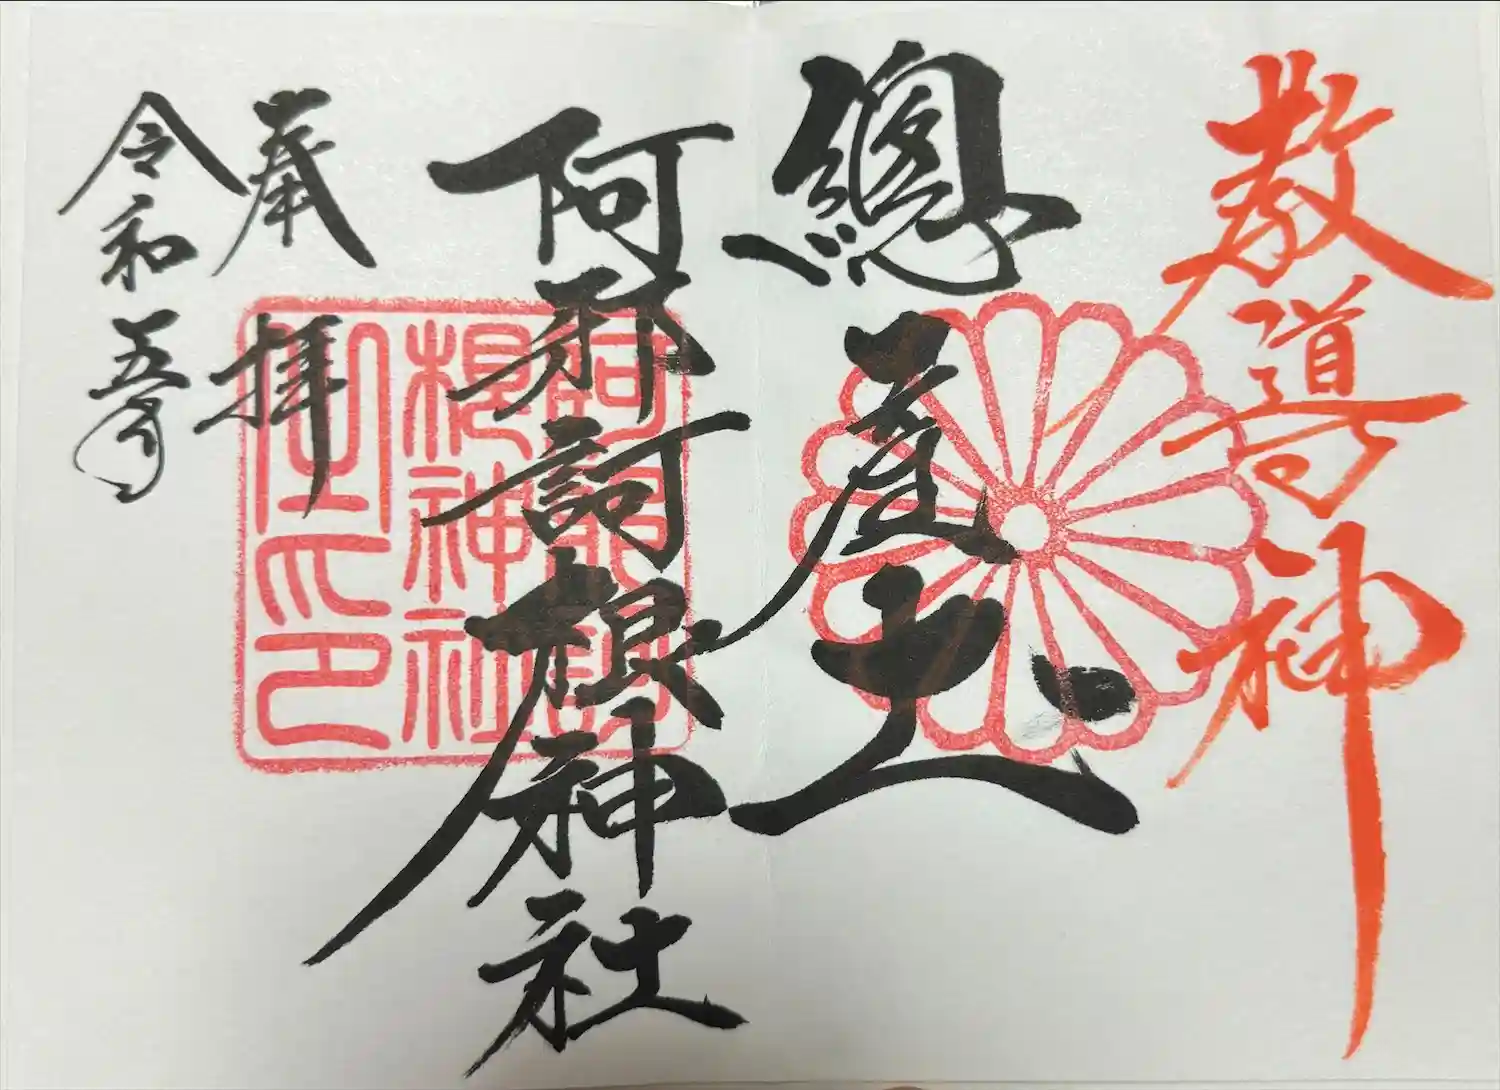 教導神
總産土
阿邪訶根神社
奉拝
令和五年
阿邪訶
根神社
之印